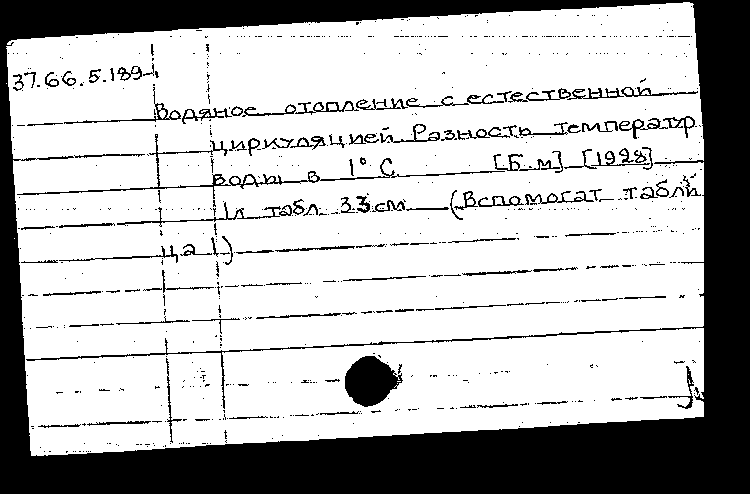 37.66.5.189-1
Водяное отопление с естественной
циркуляцией. Разность температур
воды в 1° С [Б. м] [1928]
1л табл 33см (Вспомогат табли
ца 1)